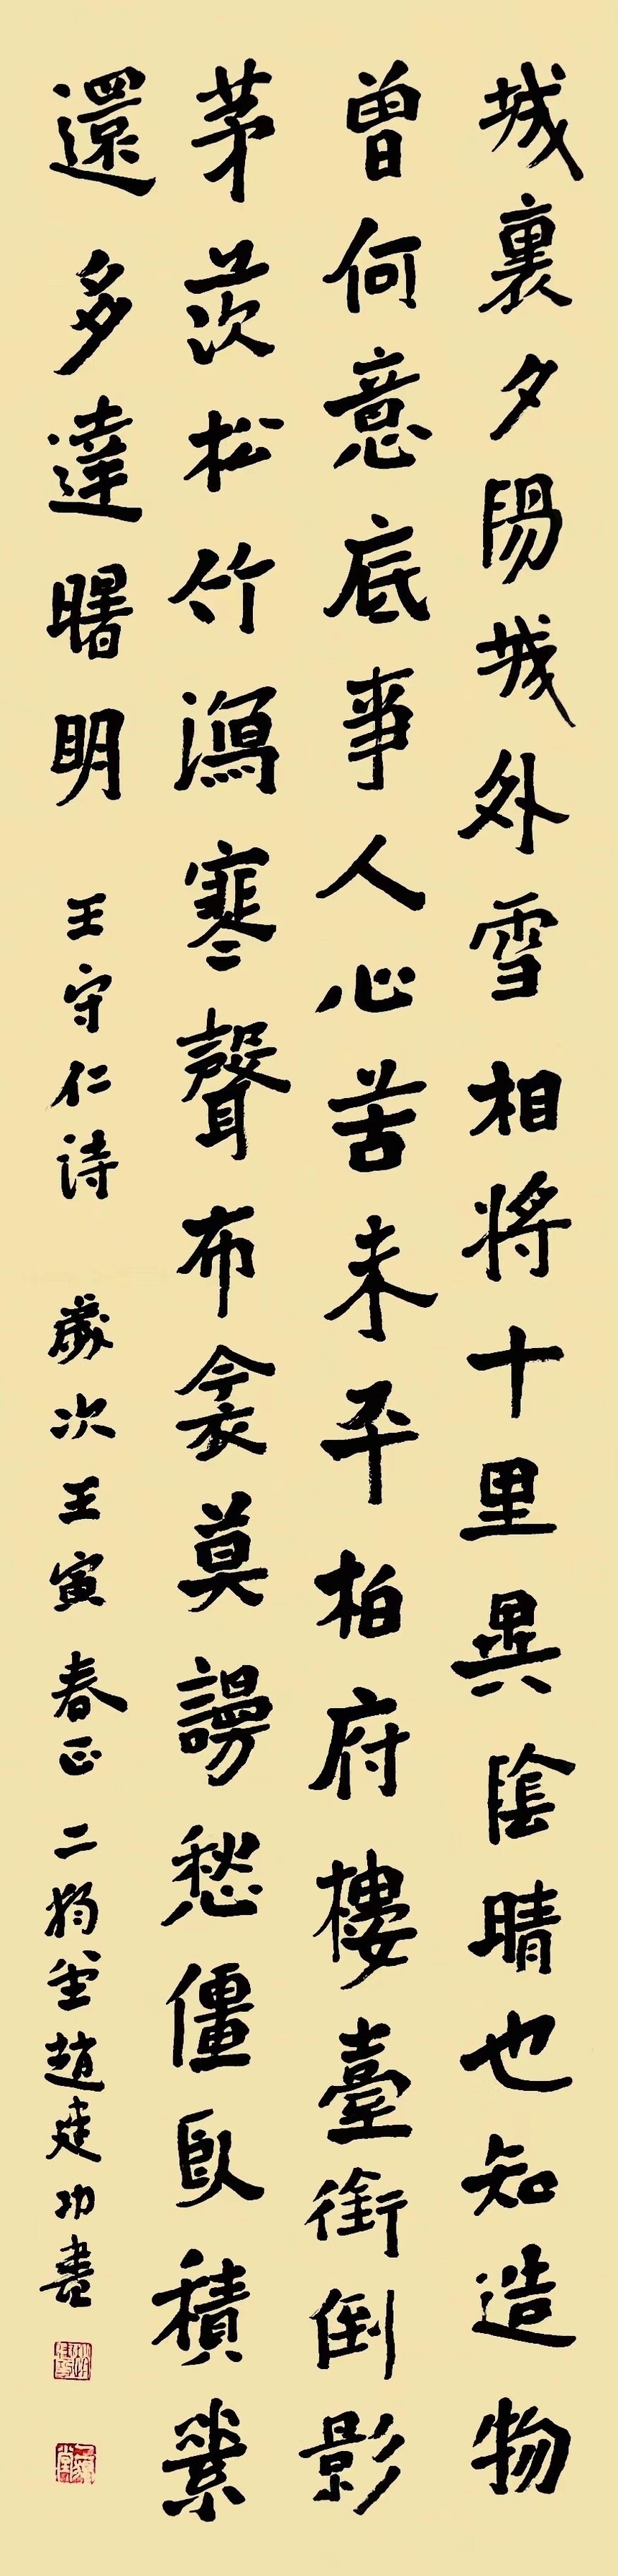 城裏夕陽城外雪相將十里異陰晴也知造物
曾何意底事人心苦未平柏府樓臺銜倒影
茅茨松竹瀉寒聲布衾莫謾愁僵臥積素
還多達曙明 王守仁诗 歲次壬寅春正 二堂趙建功書